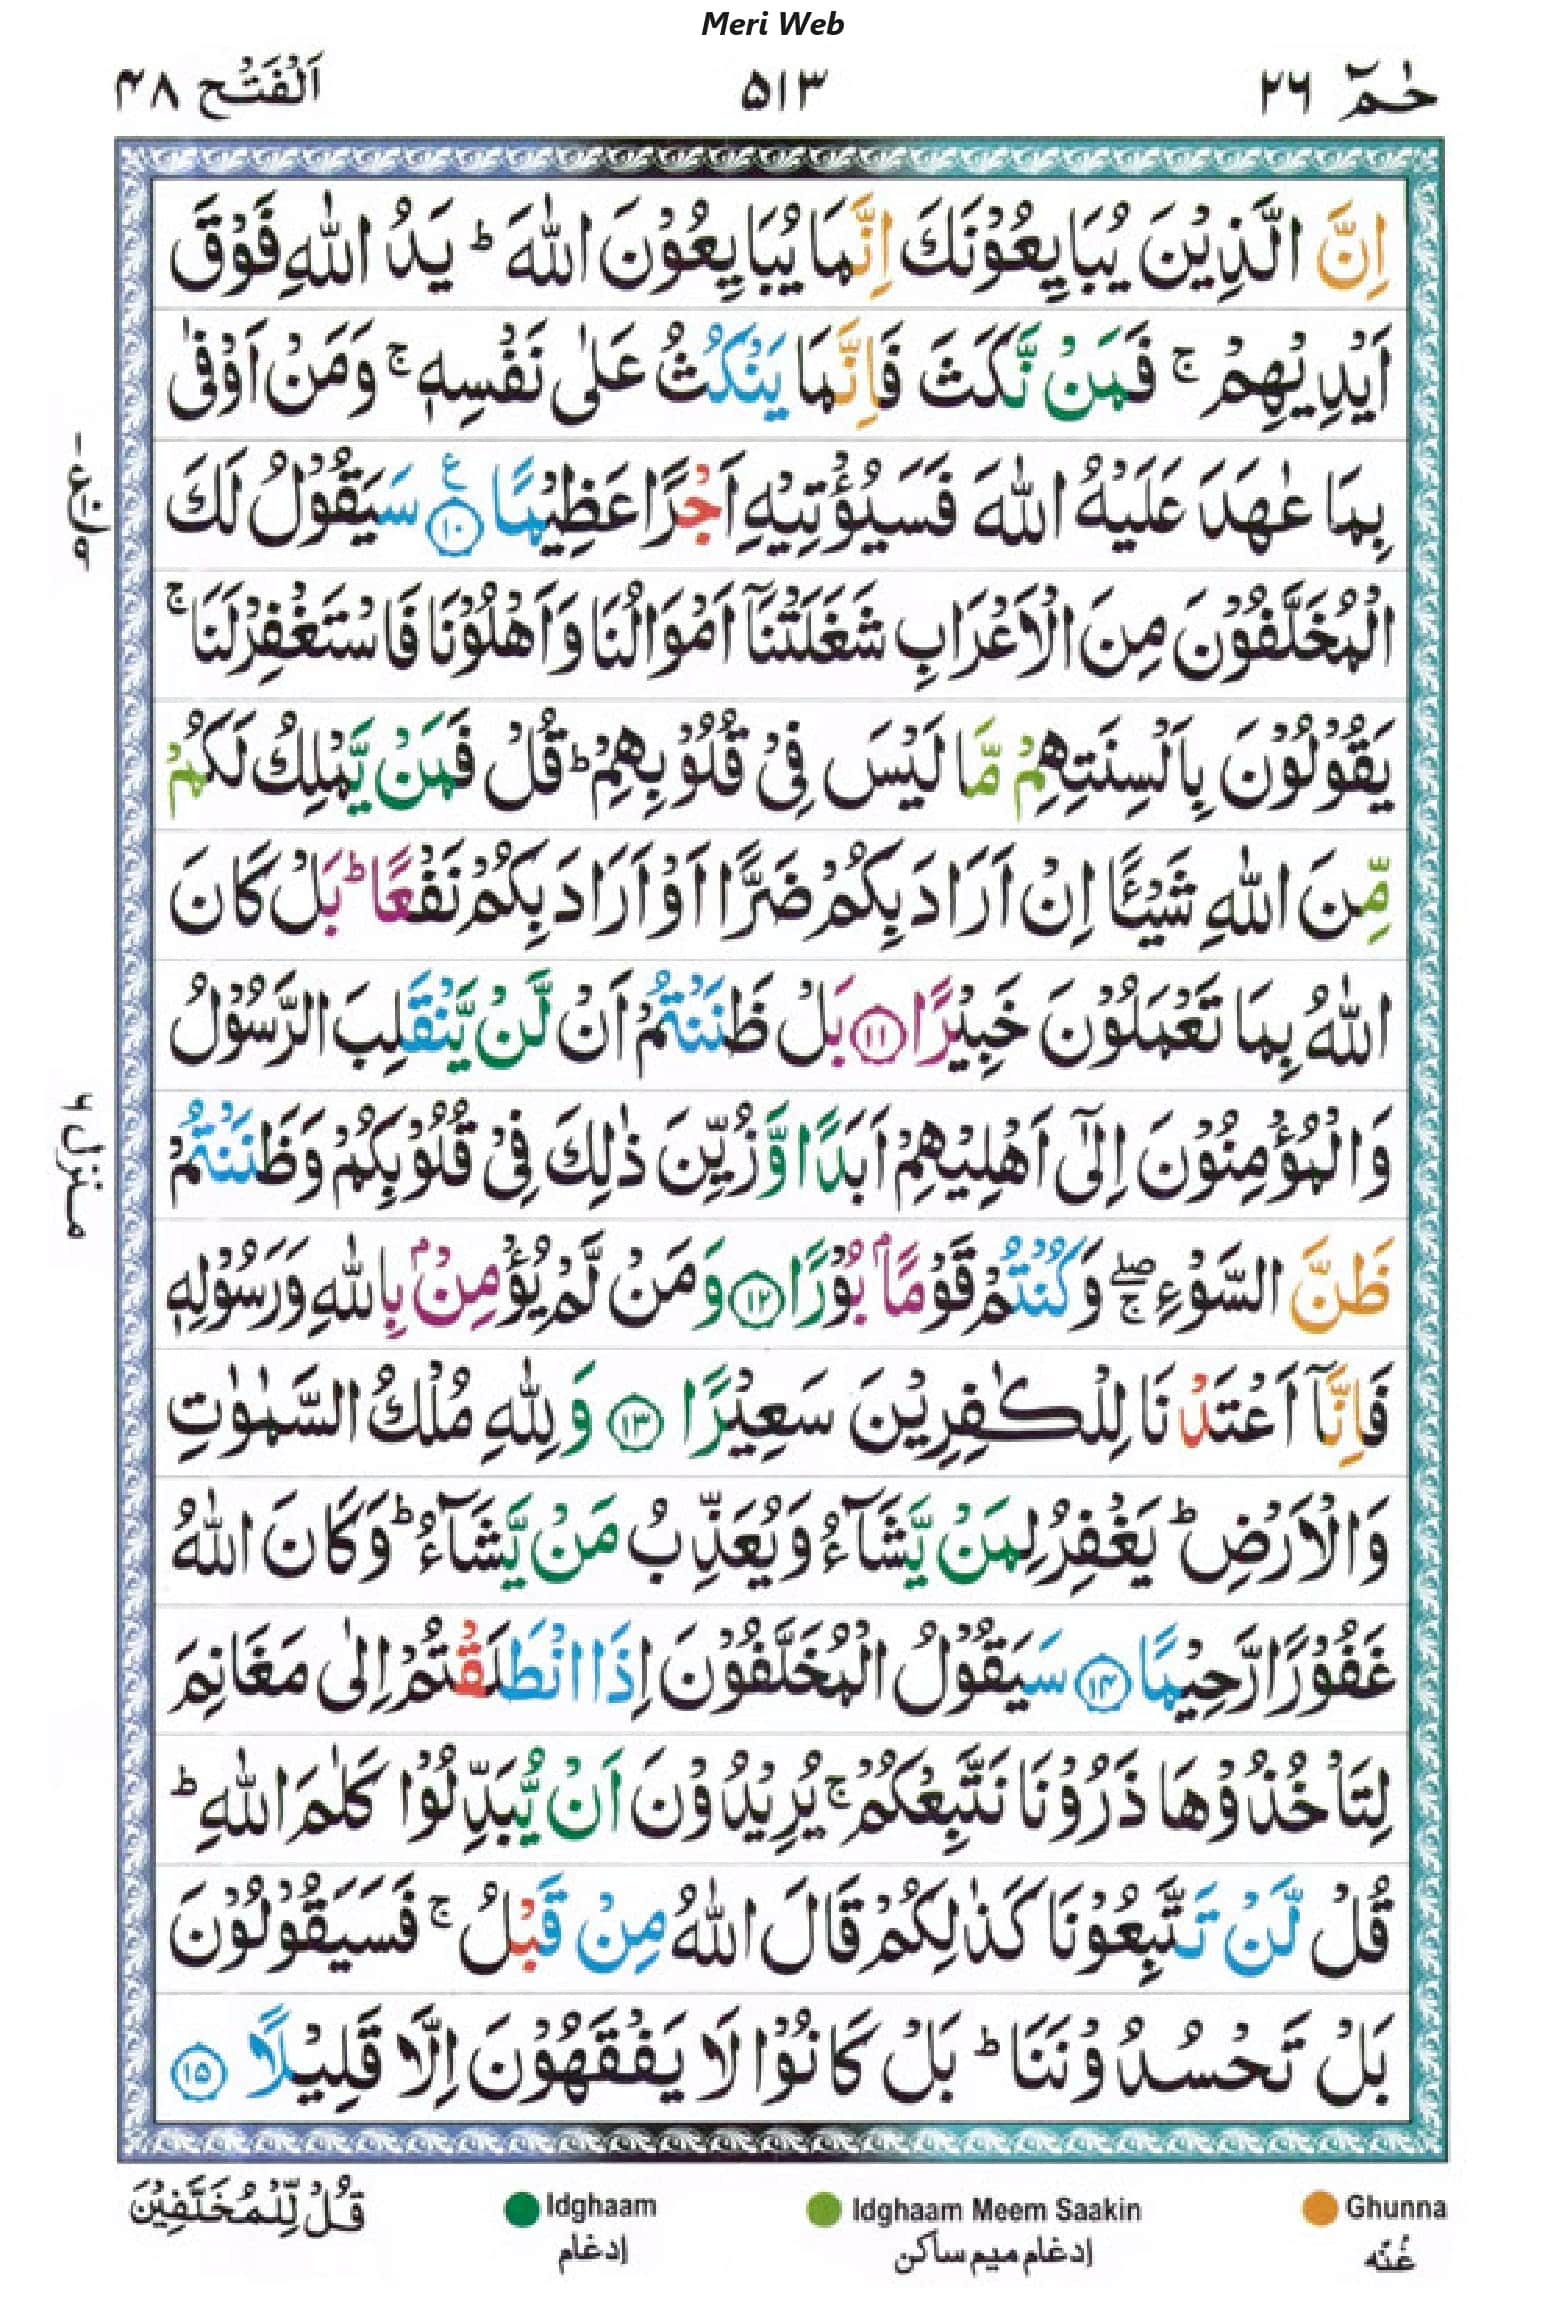 Meri Web
حٰمٓ ٢٦ ٥١٣ اَلْفَتْح ٤٨
اِنَّ الَّذِيْنَ يُبَايِعُوْنَكَ اِنَّمَا يُبَايِعُوْنَ اللّٰهَ ؕ يَدُ اللّٰهِ فَوْقَ
اَيْدِيْهِمْ ۚ فَمَنْ نَّكَثَ فَاِنَّمَا يَنْكُثُ عَلٰى نَفْسِهٖ ۚ وَمَنْ اَوْفٰى
بِمَا عٰهَدَ عَلَيْهُ اللّٰهَ فَسَيُؤْتِيْهِ اَجْرًا عَظِيْمًا ؑ ﴿١٠﴾ سَيَقُوْلُ لَكَ
الْمُخَلَّفُوْنَ مِنَ الْاَعْرَابِ شَغَلَتْنَاۤ اَمْوَالُنَا وَاَهْلُوْنَا فَاسْتَغْفِرْلَنَا ۚ
يَقُوْلُوْنَ بِاَلْسِنَتِهِمْ مَّا لَيْسَ فِىْ قُلُوْبِهِمْ ؕ قُلْ فَمَنْ يَّمْلِكُ لَكُمْ
مِّنَ اللّٰهِ شَيْئًا اِنْ اَرَادَ بِكُمْ ضَرًّا اَوْ اَرَادَ بِكُمْ نَفْعًا ؕ بَلْ كَانَ
اللّٰهُ بِمَا تَعْمَلُوْنَ خَبِيْرًا ﴿١١﴾ بَلْ ظَنَنْتُمْ اَنْ لَّنْ يَّنْقَلِبَ الرَّسُوْلُ
وَالْمُؤْمِنُوْنَ اِلٰٓى اَهْلِيْهِمْ اَبَدًا وَّزُيِّنَ ذٰلِكَ فِىْ قُلُوْبِكُمْ وَظَنَنْتُمْ
ظَنَّ السَّوْءِ ۖۚ وَكُنْتُمْ قَوْمًاۢ بُوْرًا ﴿١٢﴾ وَمَنْ لَّمْ يُؤْمِنْۢ بِاللّٰهِ وَرَسُوْلِهٖ
فَاِنَّاۤ اَعْتَدْنَا لِلْكٰفِرِيْنَ سَعِيْرًا ﴿١٣﴾ وَلِلّٰهِ مُلْكُ السَّمٰوٰتِ
وَالْاَرْضِ ؕ يَغْفِرُ لِمَنْ يَّشَآءُ وَيُعَذِّبُ مَنْ يَّشَآءُ ؕ وَكَانَ اللّٰهُ
غَفُوْرًا رَّحِيْمًا ﴿١٤﴾ سَيَقُوْلُ الْمُخَلَّفُوْنَ اِذَا انْطَلَقْتُمْ اِلٰى مَغَانِمَ
لِتَاْخُذُوْهَا ذَرُوْنَا نَتَّبِعْكُمْ ۚ يُرِيْدُوْنَ اَنْ يُّبَدِّلُوْا كَلٰمَ اللّٰهِ ؕ
قُلْ لَّنْ تَتَّبِعُوْنَا كَذٰلِكُمْ قَالَ اللّٰهُ مِنْ قَبْلُ ۚ فَسَيَقُوْلُوْنَ
بَلْ تَحْسُدُوْنَنَا ؕ بَلْ كَانُوْا لَا يَفْقَهُوْنَ اِلَّا قَلِيْلًا ﴿١٥﴾
منزل ٦
Ghunna Idghaam Meem Saakin Idghaam قُلْ لِّلْمُخَلَّفِيْنَ
غُنّه ادغام ميم ساكن ادغام